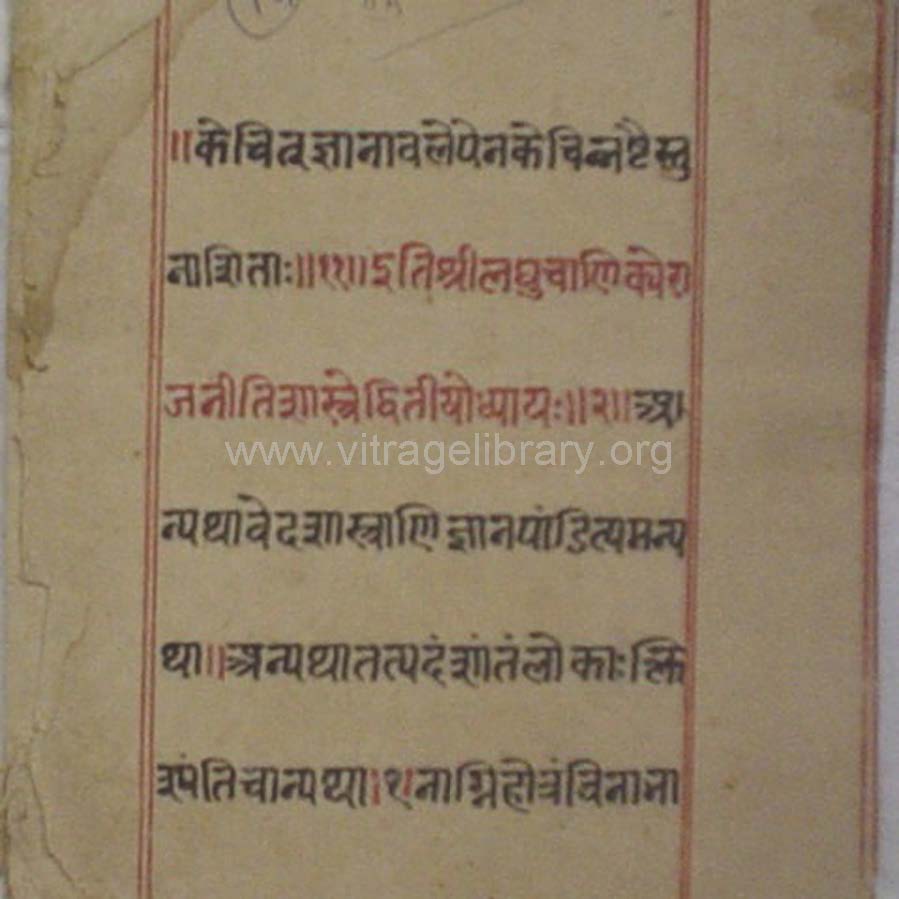 ॥केचित्ज्ञानावलेपेनकेचिन्नष्टैस्तु
नाशिताः॥११॥इतिश्रीलघुचाणिक्येरा
जनीतिशास्त्रेद्वितीयोध्यायः॥२॥अ
www.vitragelibrary.org
न्यथावेदशास्त्राणिज्ञानपांडित्यमन्य
था॥अन्यथातत्पदंशांतंलोकाःक्लि
श्यंतिचान्यथा।१नाग्निहोत्रंविनाना